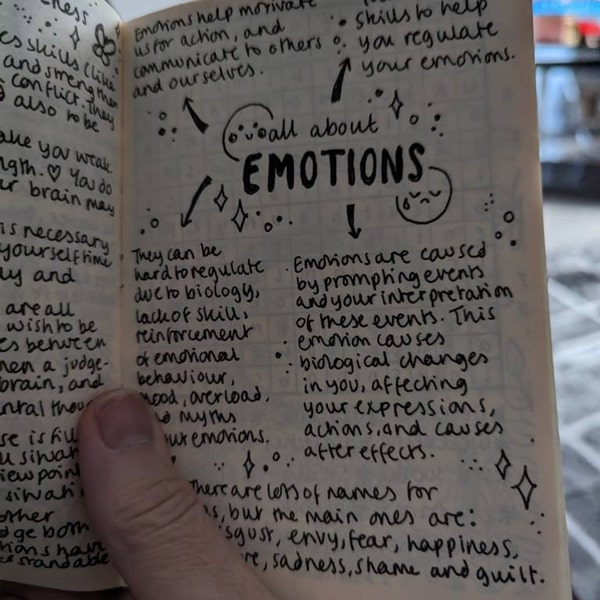 es skills (like
and strengthen
conflict. They
also to be
ake you weak.
ngth. ♡ You do
ur brain may
is necessary
yourself time
ly and
are all
wish to be
es between
hen a judge-
brain, and
ntal
se is
viewpoint
other
dge both
Emotions help motivate
us for action, and
communicate to others
and ourselves.
skills to help
you regulate
your emotions.
all about
EMOTIONS
They can be
hard to regulate
due to biology,
lack of skill,
reinforcement
of emotional
behaviour,
mood, overload,
myths
emotions.
Emotions are caused
by prompting events
and your interpretation
of these events. This
emotion causes
biological changes
in you, affecting
your expressions,
actions, and causes
after effects.
There are lots of names for
but the main ones are:
disgust, envy, fear, happiness,
sadness, shame and guilt.